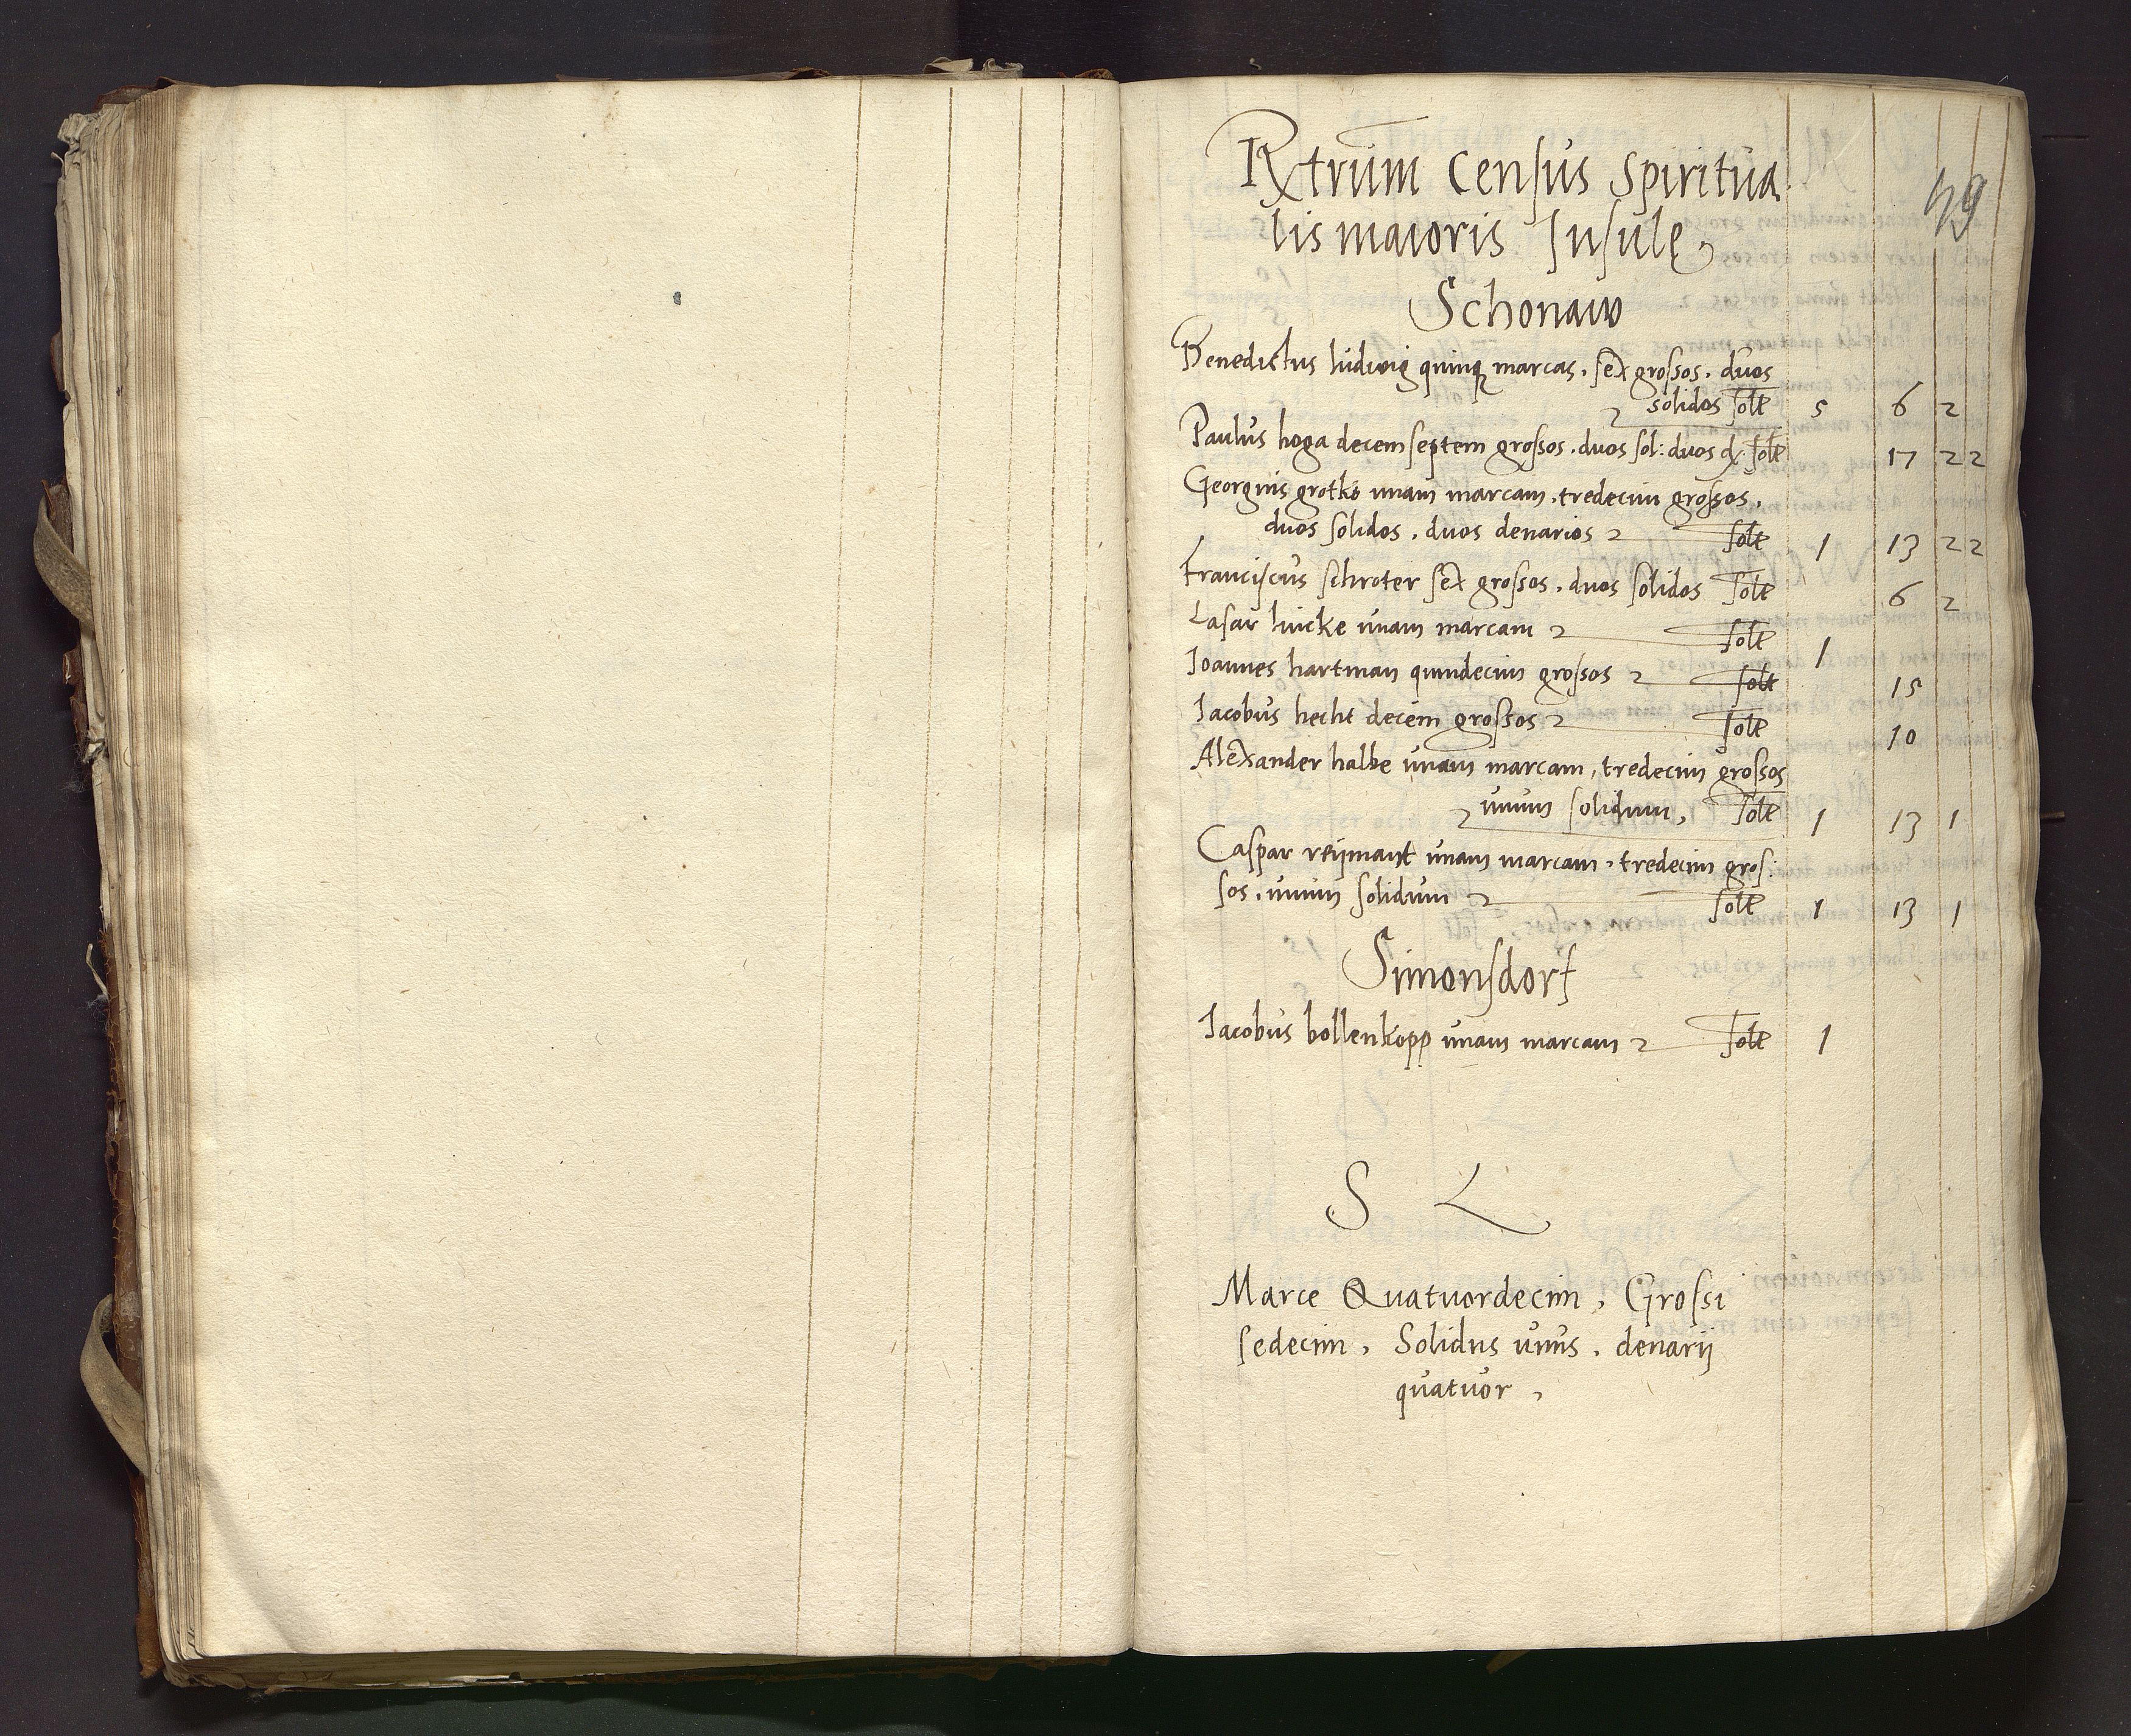 49
Rxtrum Census Spiritua
lis maioris Insulę,
Schonaw
Benedictus ludwig quinq marcas, sex grossos, duos
solidos solt 5 6 2
Paulus hoga decem septem grossos, duos sol: duos d solt 17 2 2
Georgius grotko unam marcam, tredecim grossos,
duos solidos, duos denarios solt 1 13 2 2
Franciscus schroter sex grossos, duos solidos solt 6 2
Lasar lincke unam marcam solt 1
Joannes hartman quindecim grossos solt 15
Jacobus hecht decem grossos solt 10
Alexander halbe unam marcam, tredecim grossos
unum solidum, solt 1 13 1
Caspar reijmant unam marcam, tredecim gros:
sos, unum solidum solt 1 13 1
Simonsdorf
Jacobus bollenkopp unam marcam solt 1
S L
Marce Quatuordecim, Grossi
sedecim, Solidus unus, denarij
quatuor,